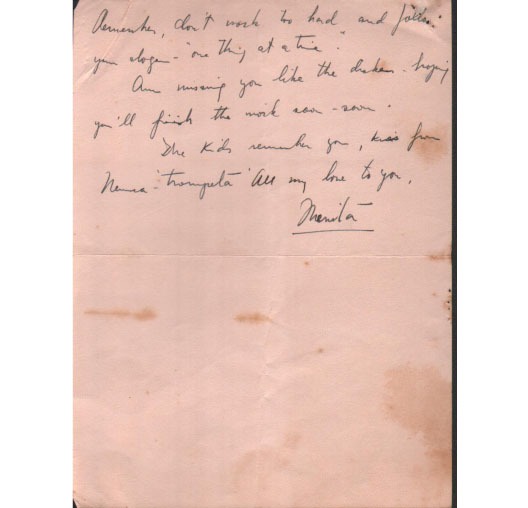 Remember, don't work too hard and follow
your slogan - "one thing at a time".
Am missing you like the dickens - hoping
you'll finish the work soon - soon.
The Kids remember you, kiss from
"trompeta" All my love to you,